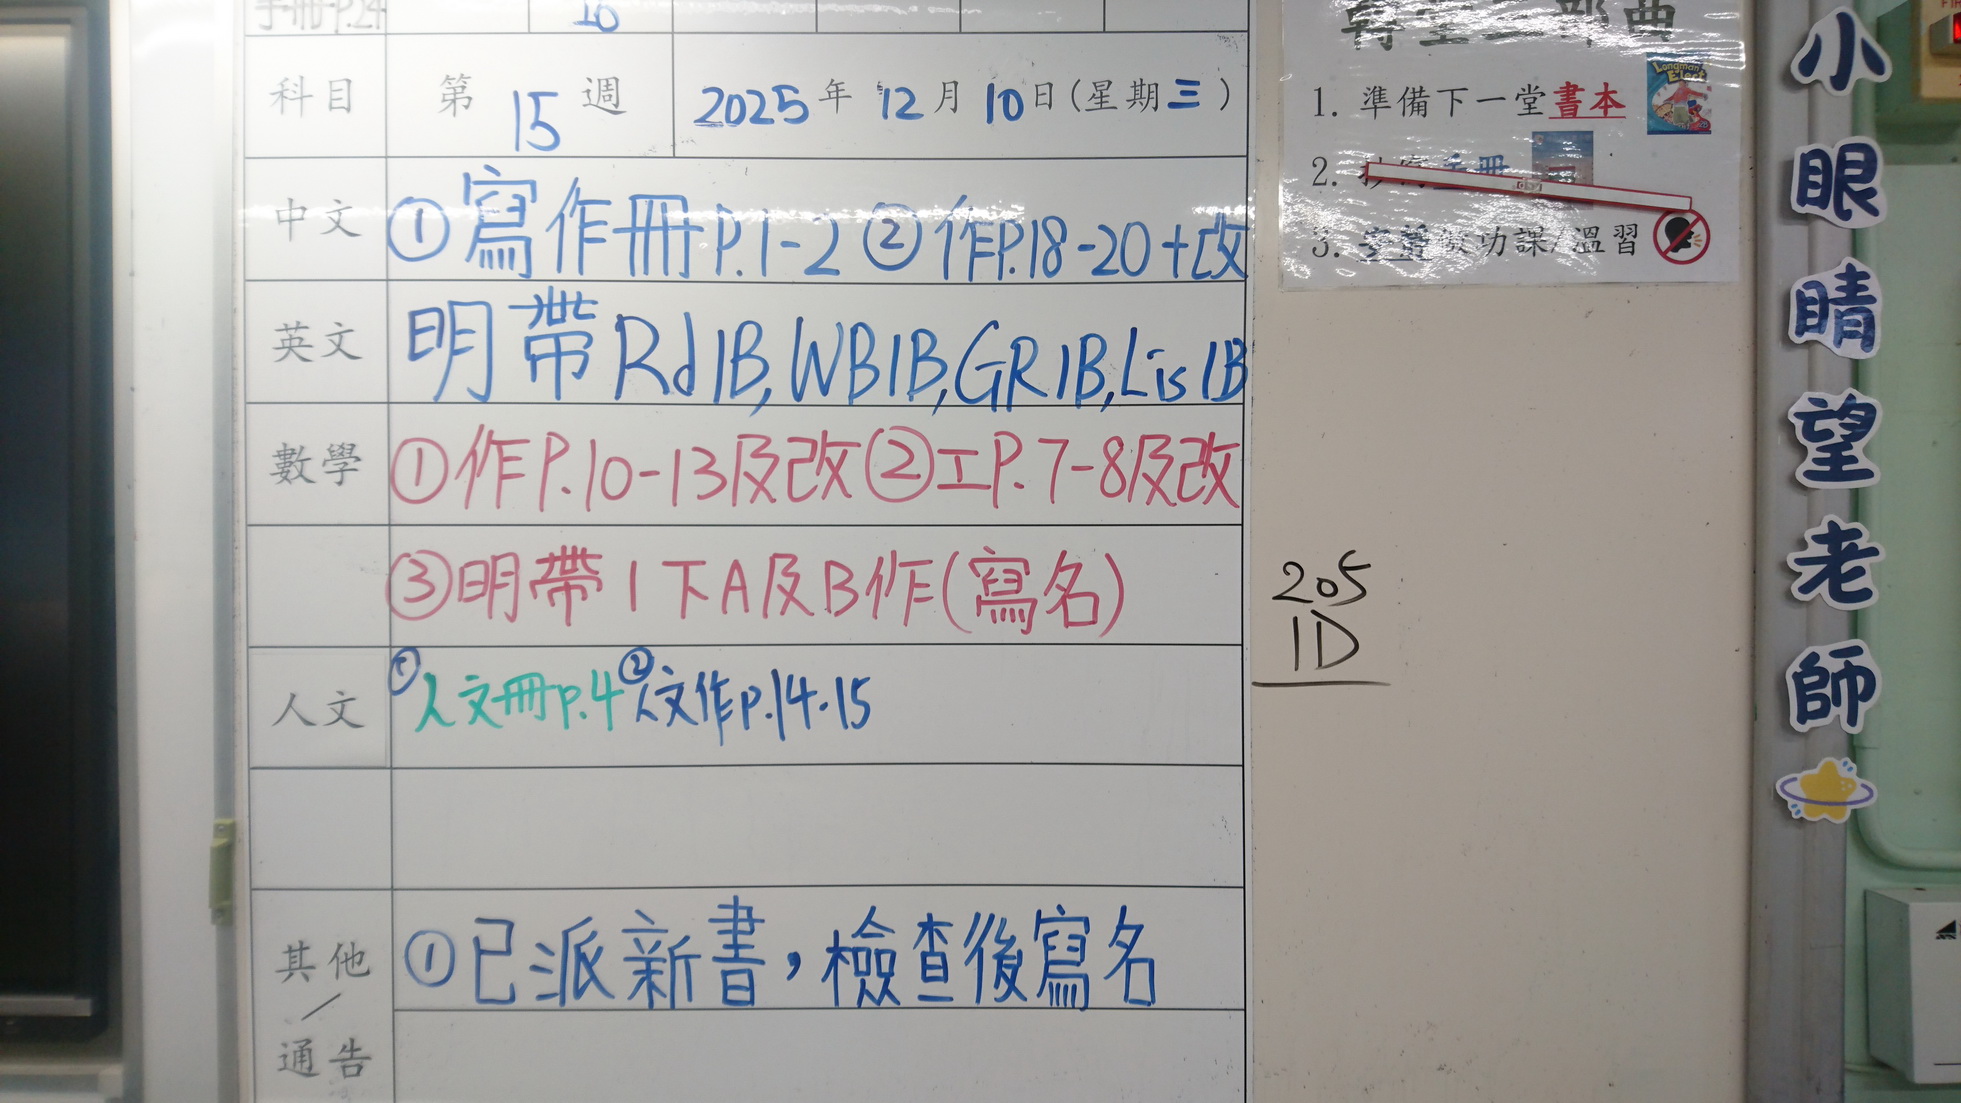 手冊P.24 16
科目 第 15 週 2025 年 12 月 10 日(星期三)
中文 ①寫作冊P.1-2 ②作P.18-20+改
英文 明帶Rd1B, WB1B, GR1B, Lis 1B
數學 ①作P.10-13及改②工P.7-8及改
③明帶1下A及B作(寫名)
人文 ①人文冊p.4 ②人文作p.14-15
其他/通告 ①已派新書,檢查後寫名
三部曲
1. 準備下一堂書本
Longman Elect
2. 手冊
3. 安靜做功課/溫習
205
1D
小眼睛望老師